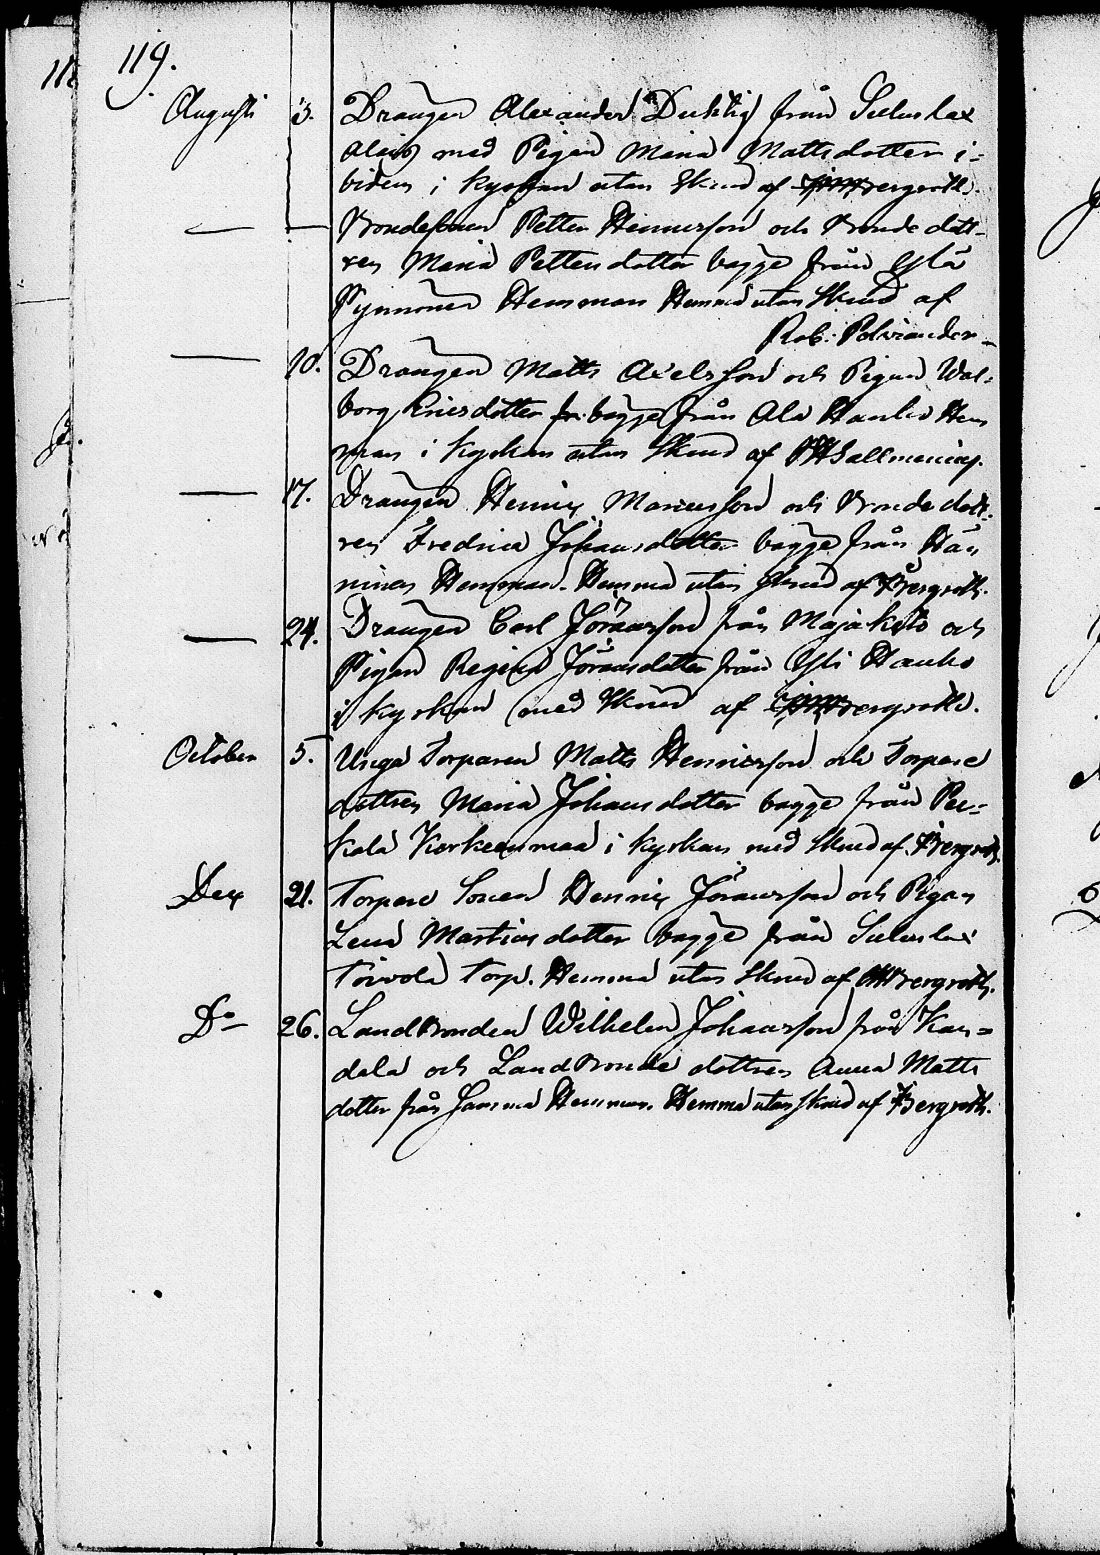 119.
Augusti 3. Drängen Alexander Ducktig från Suluslax
Alais med Pigan Maria Mattsdotter i=
bidem i kyrkan utan Skrud af Bergroth.
— — Bondesonen Petter Henricsson och Bonde dott=
ren Maria Pettersdotter bägge från Ylä
Pynnönen Hemman Hemma utan Skrud af
Rob: Polviander
— 10. Drängen Matts Axelsson och Pigan Wal=
borg Ericsdotter bägge från Ala Hanko Hem
man i kyrkan utan Skrud af Sallmening.
— 17. Drängen Henric Marcusson och Bonde dott=
ren Fredrica Johansdotter bägge från Hän
ninen Hemman. Hemma utan Skrud af Bergroth.
— 24. Drängen Carl Jöransson från Majakylä och
Pigan Regina Jöransdotter från Yli Hanko
i kyrkan med Skrud af Bergroth.
October 5. Unga Torparen Matts Henricsson och Torpare
dottren Maria Johansdotter bägge från Per=
kala Korkeenmaa i kyrkan med Skrud af Bergroth.
Dec 21. Torpare Sonen Henric Jöransson och Pigan
Lena Martinsdotter bägge från Suluslax
Toivola Torp. Hemma utan Skrud af Bergroth.
Do 26. Landbonden Wilhelm Johansson från Kan=
dala och Landbonde dottren Anna Matts
dotter från Samma Hemman. Hemma utan Skrud af Bergroth.